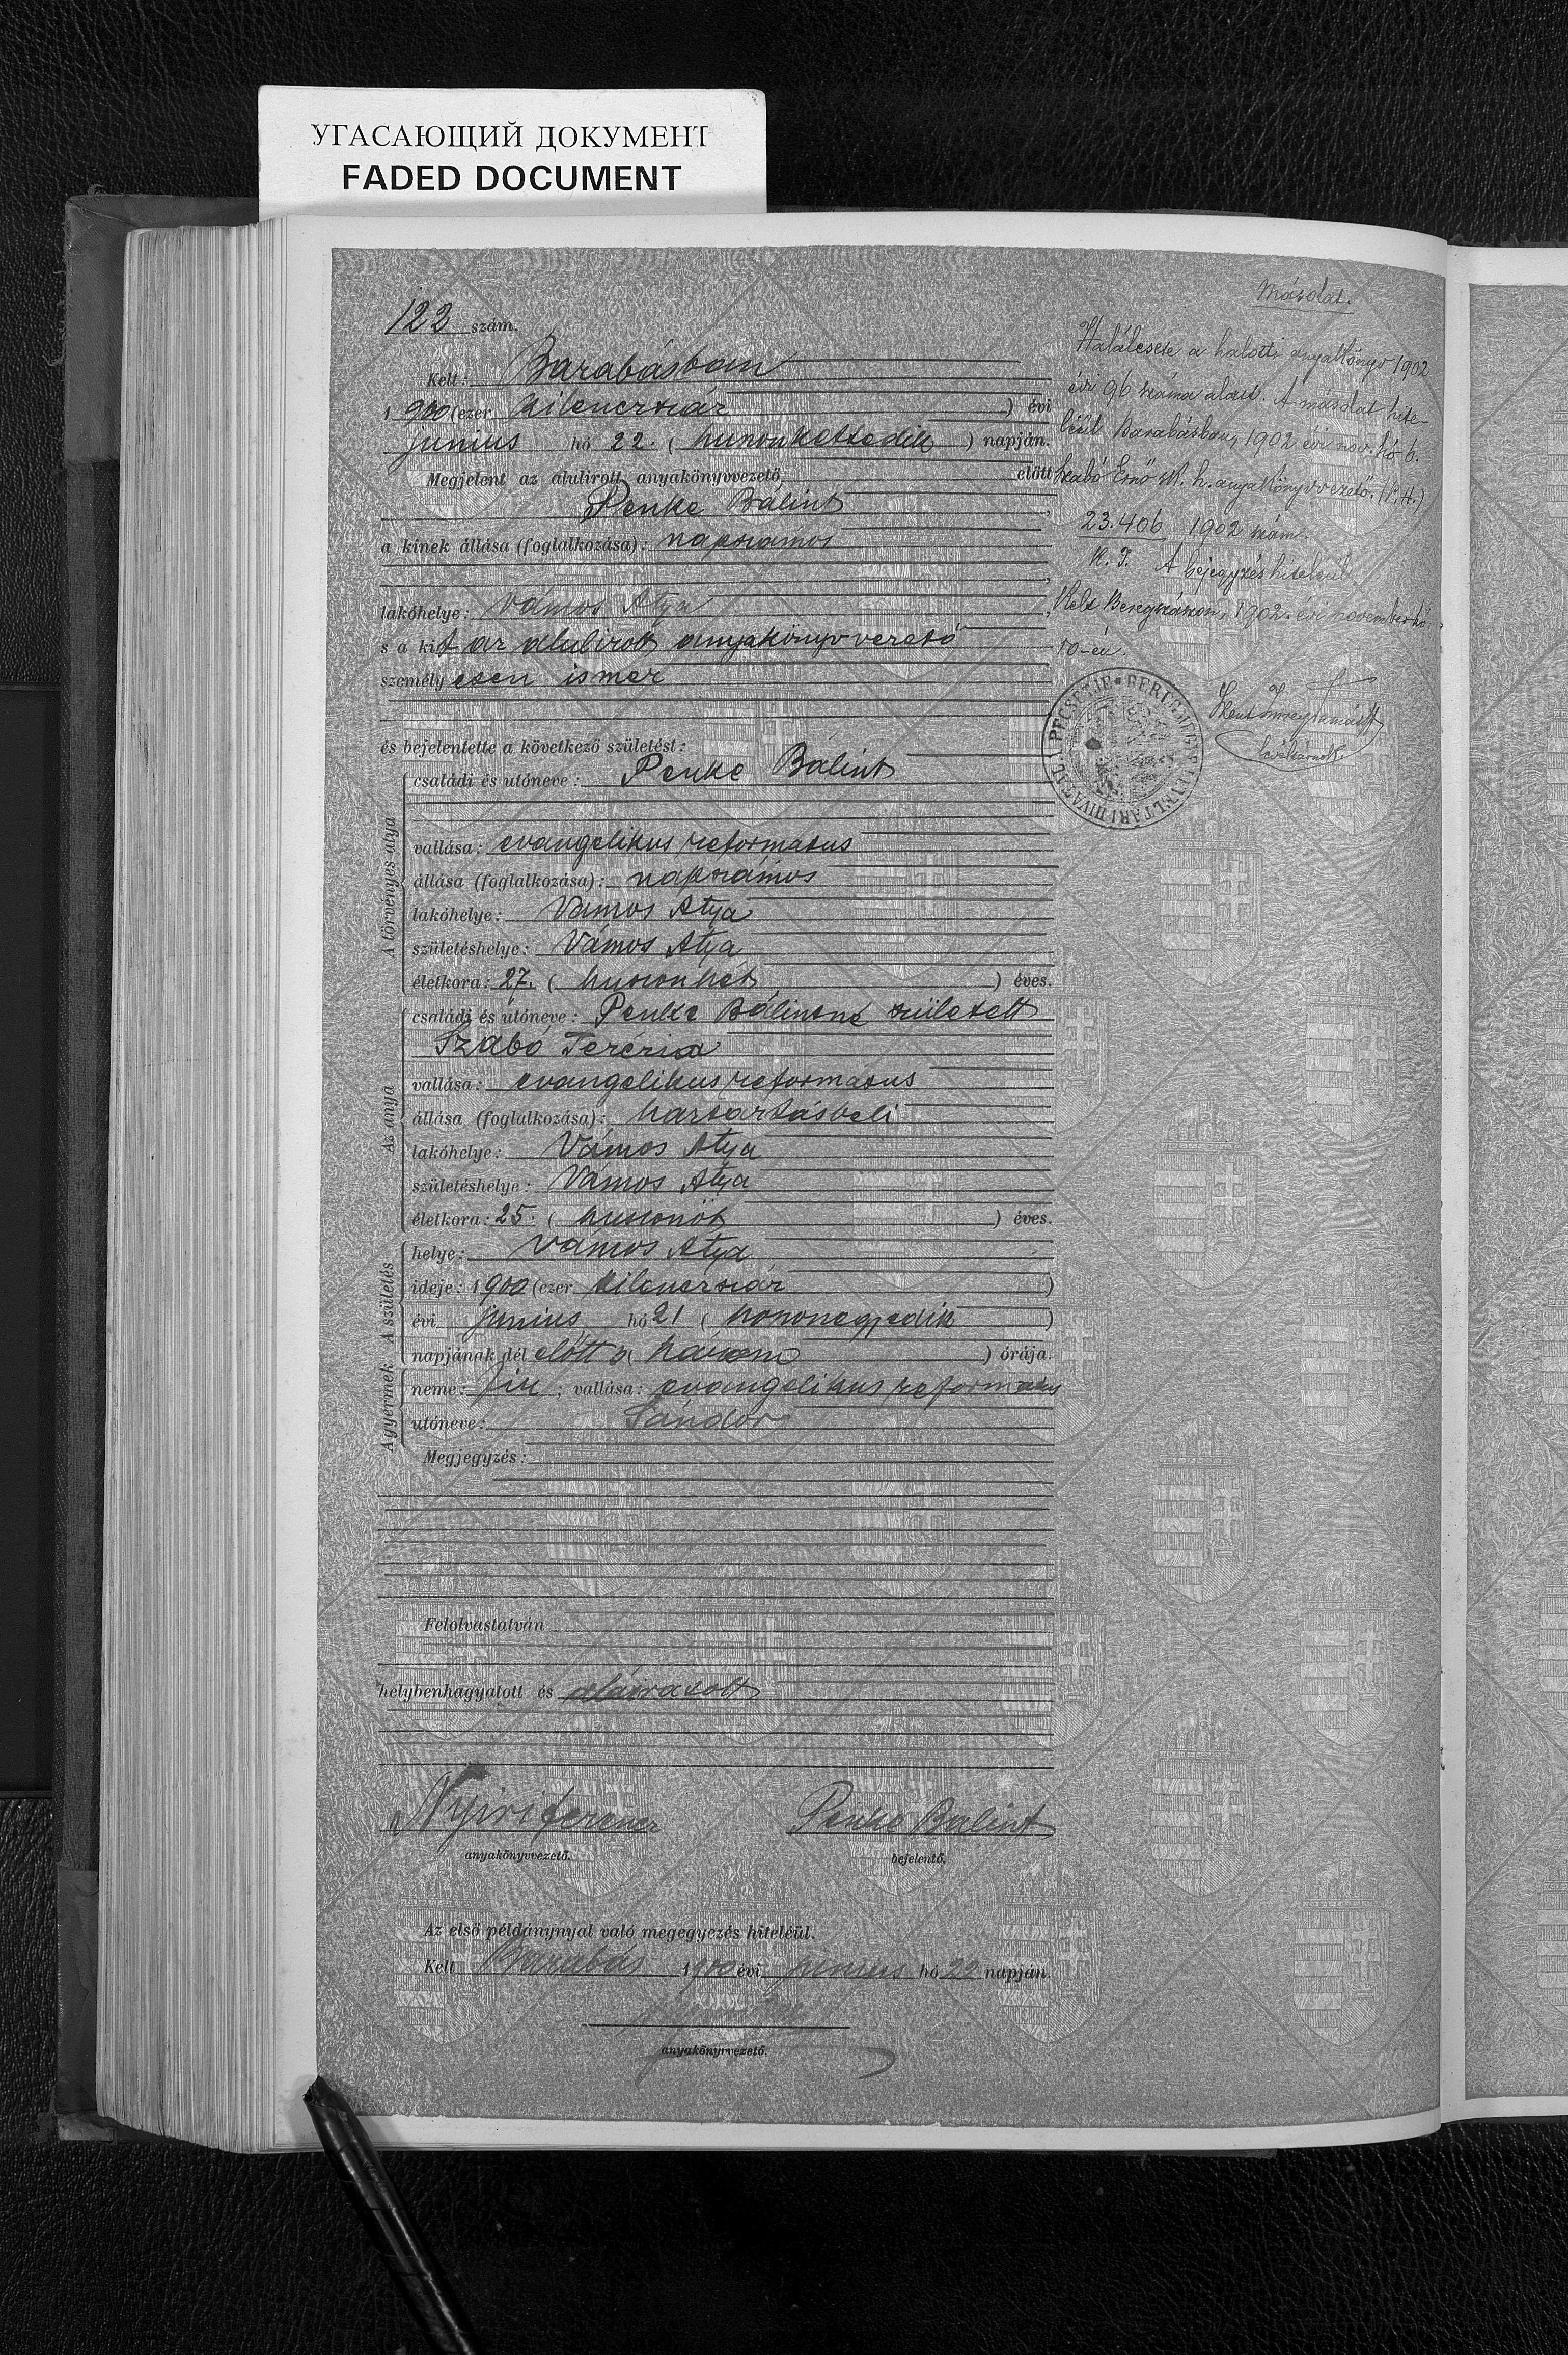 УГАСАЮЩИЙ ДОКУМЕНТ
FADED DOCUMENT
122 szám.
Kelt: Barabásban
1900 (ezer kilenczszáz) évi
junius hó 22. (huszonkettedik) napján.
Megjelent az alulirott anyakönyvvezető előtt
Penke Bálint,
a kinek állása (foglalkozása): napszámos
,
lakóhelye: Vámos Atya,
s a kit az alulirott anyakönyvvezető
személyesen ismer
és bejelentette a következő születést:
A törvényes atya
családi és utóneve: Penke Bálint
vallása: evangelikus reformatus
állása (foglalkozása): napszámos
lakóhelye: Vámos Atya
születéshelye: Vámos Atya
életkora: 27. (huszonhét) éves.
Az anya
családi és utóneve: Penke Bálintné született
Szabó Terézia
vallása: evangelikus reformatus
állása (foglalkozása): háztartásbeli
lakóhelye: Vámos Atya
születéshelye: Vámos Atya
életkora: 25. (huszonöt) éves.
A születés
helye: Vámos Atya
ideje: 1900 (ezer kilenczszáz)
évi junius hó 21 (huszonegyedik)
napjának dél előtt 3 (három) órája.
A gyermek
neme: fiu; vallása: evangelikus reformatus
utóneve: Sándor
Megjegyzés:
Felolvastatván
helybenhagyatott és aláiratott
Nyiri Ferencz Penke Balint
anyakönyvvezető. bejelentő.
Az első példánynyal való megegyezés hiteléül.
Kelt Barabás 1900 évi junius hó 22 napján.
anyakönyvvezető.
Másolat.
Halálesete a halotti anyakönyv 1902
évi 96 száma alatt. A másolat hite-
léül Barabásban, 1902 évi nov. hó 6.
Szabó Ernő h. anyakönyvvezető. (P.H.)
23.406 1902 szám.
K. I. A bejegyzés hiteléül
Kelt Beregszászon, 1902. évi november hó
10-én.
levéltárnok